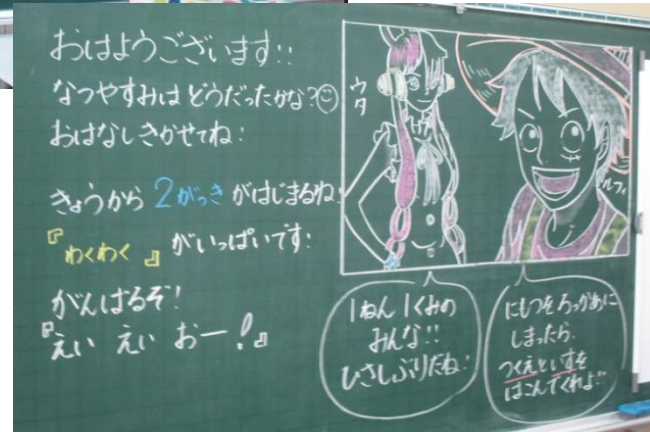 おはようございます!!
なつやすみは どうだったかな?
おはなしきかせてね!
きょうから 2がっき がはじまるね!
『わくわく』がいっぱいです!
がんばるぞ!
『えい えい おー!』
ウタ
ルフィ
1ねん1くみの
みんな!!
ひさしぶりだね!
にもつをろっかあに
しまったら、
つくえといすを
はこんでくれよ!!